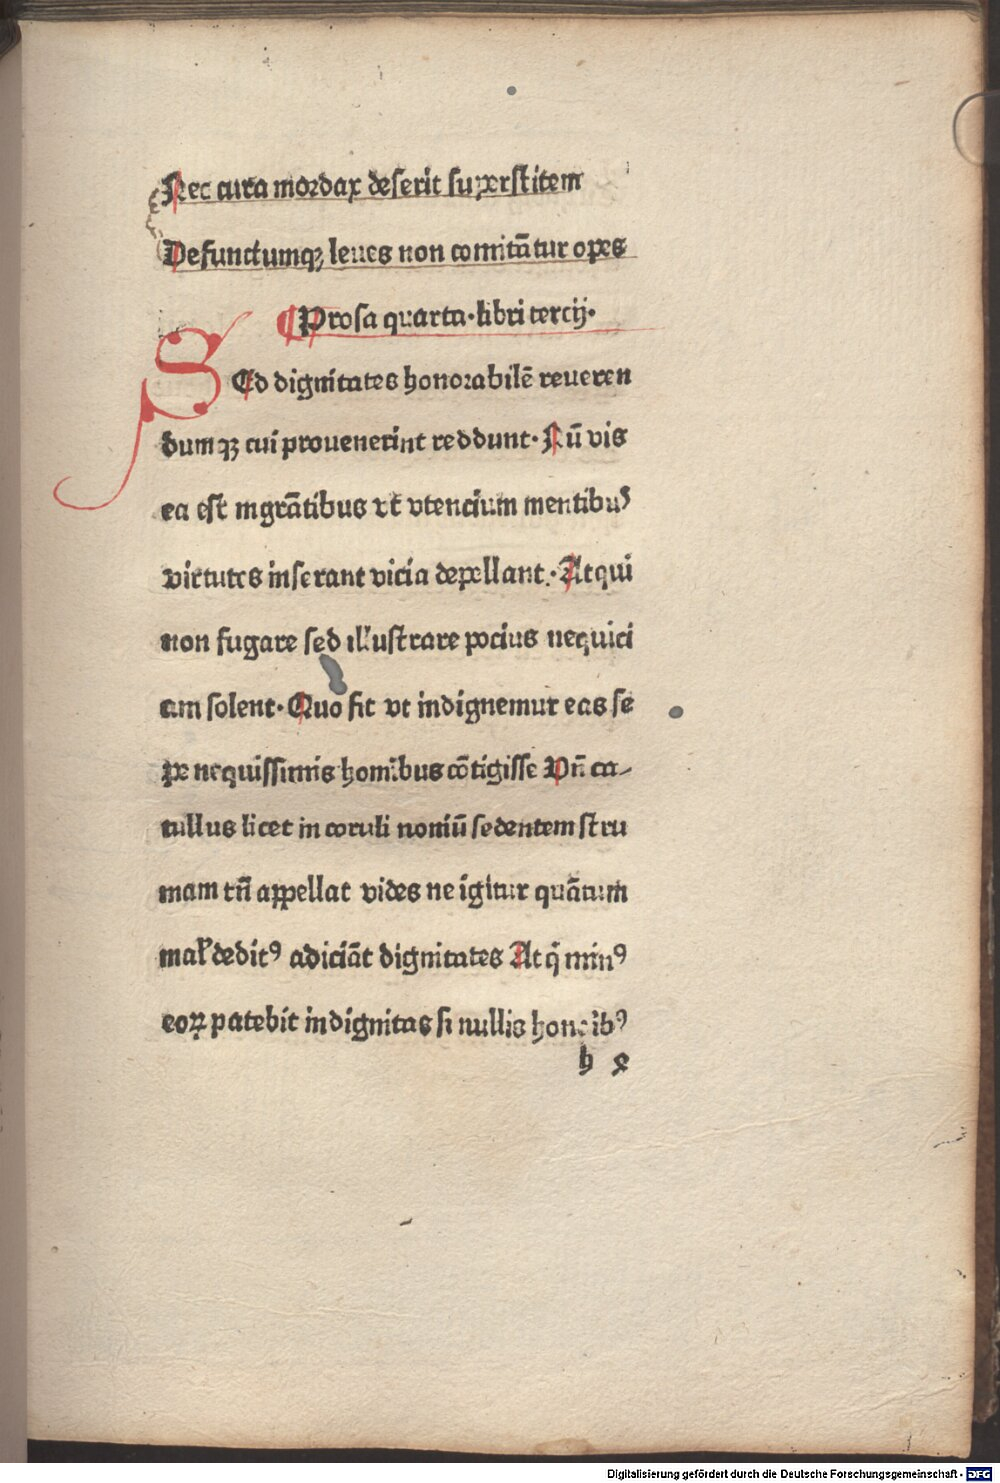 Nec cura mordax deserit superstitem
Defunctumqꝫ leues non comitātur opes
¶ Prosa quarta·libri tercij·
SEd dignitates honorabilē reueren
dumqꝫ cui prouenerint reddunt· Nū vis
ea est mgrātibus vt vtencium mentibuꝰ
virtutes inserant vicia depellant·Atqui
non fugare sed illustrare pocius nequici
am solent·Quo fit vt indignemur eas se
pe nequissimis hominibus cōtigisse Vn̄ ca
tullus licet in coruli noniū sedentem stru
mam tn̄ appellat vides ne igitur quātum
malꝰ deditꝰ adiciāt dignitates At q̄ minꝰ
eoꝝ patebit indignitas si nullis honoribꝰ
h
Digitalisierung gefördert durch die Deutsche Forschungsgemeinschaft - DFG